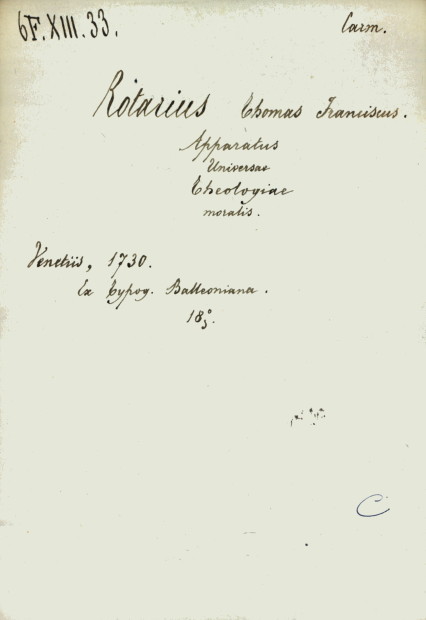 6F.XIII.33.
Carm.
Rotarius Thomas Franciscus.
Apparatus
Universae
Theologiae
moralis.
Venetiis, 1730.
Ex Typog. Balleoniana.
18°.
C